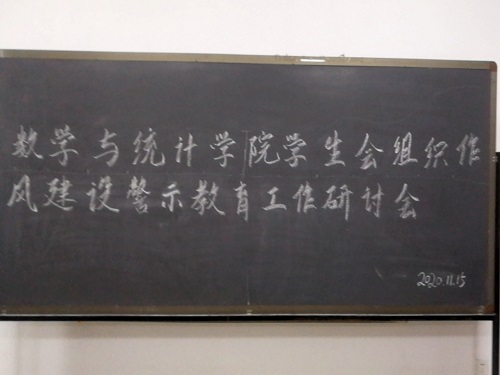 数学与统计学院学生会组织作
风建设警示教育工作研讨会
2020.11.15